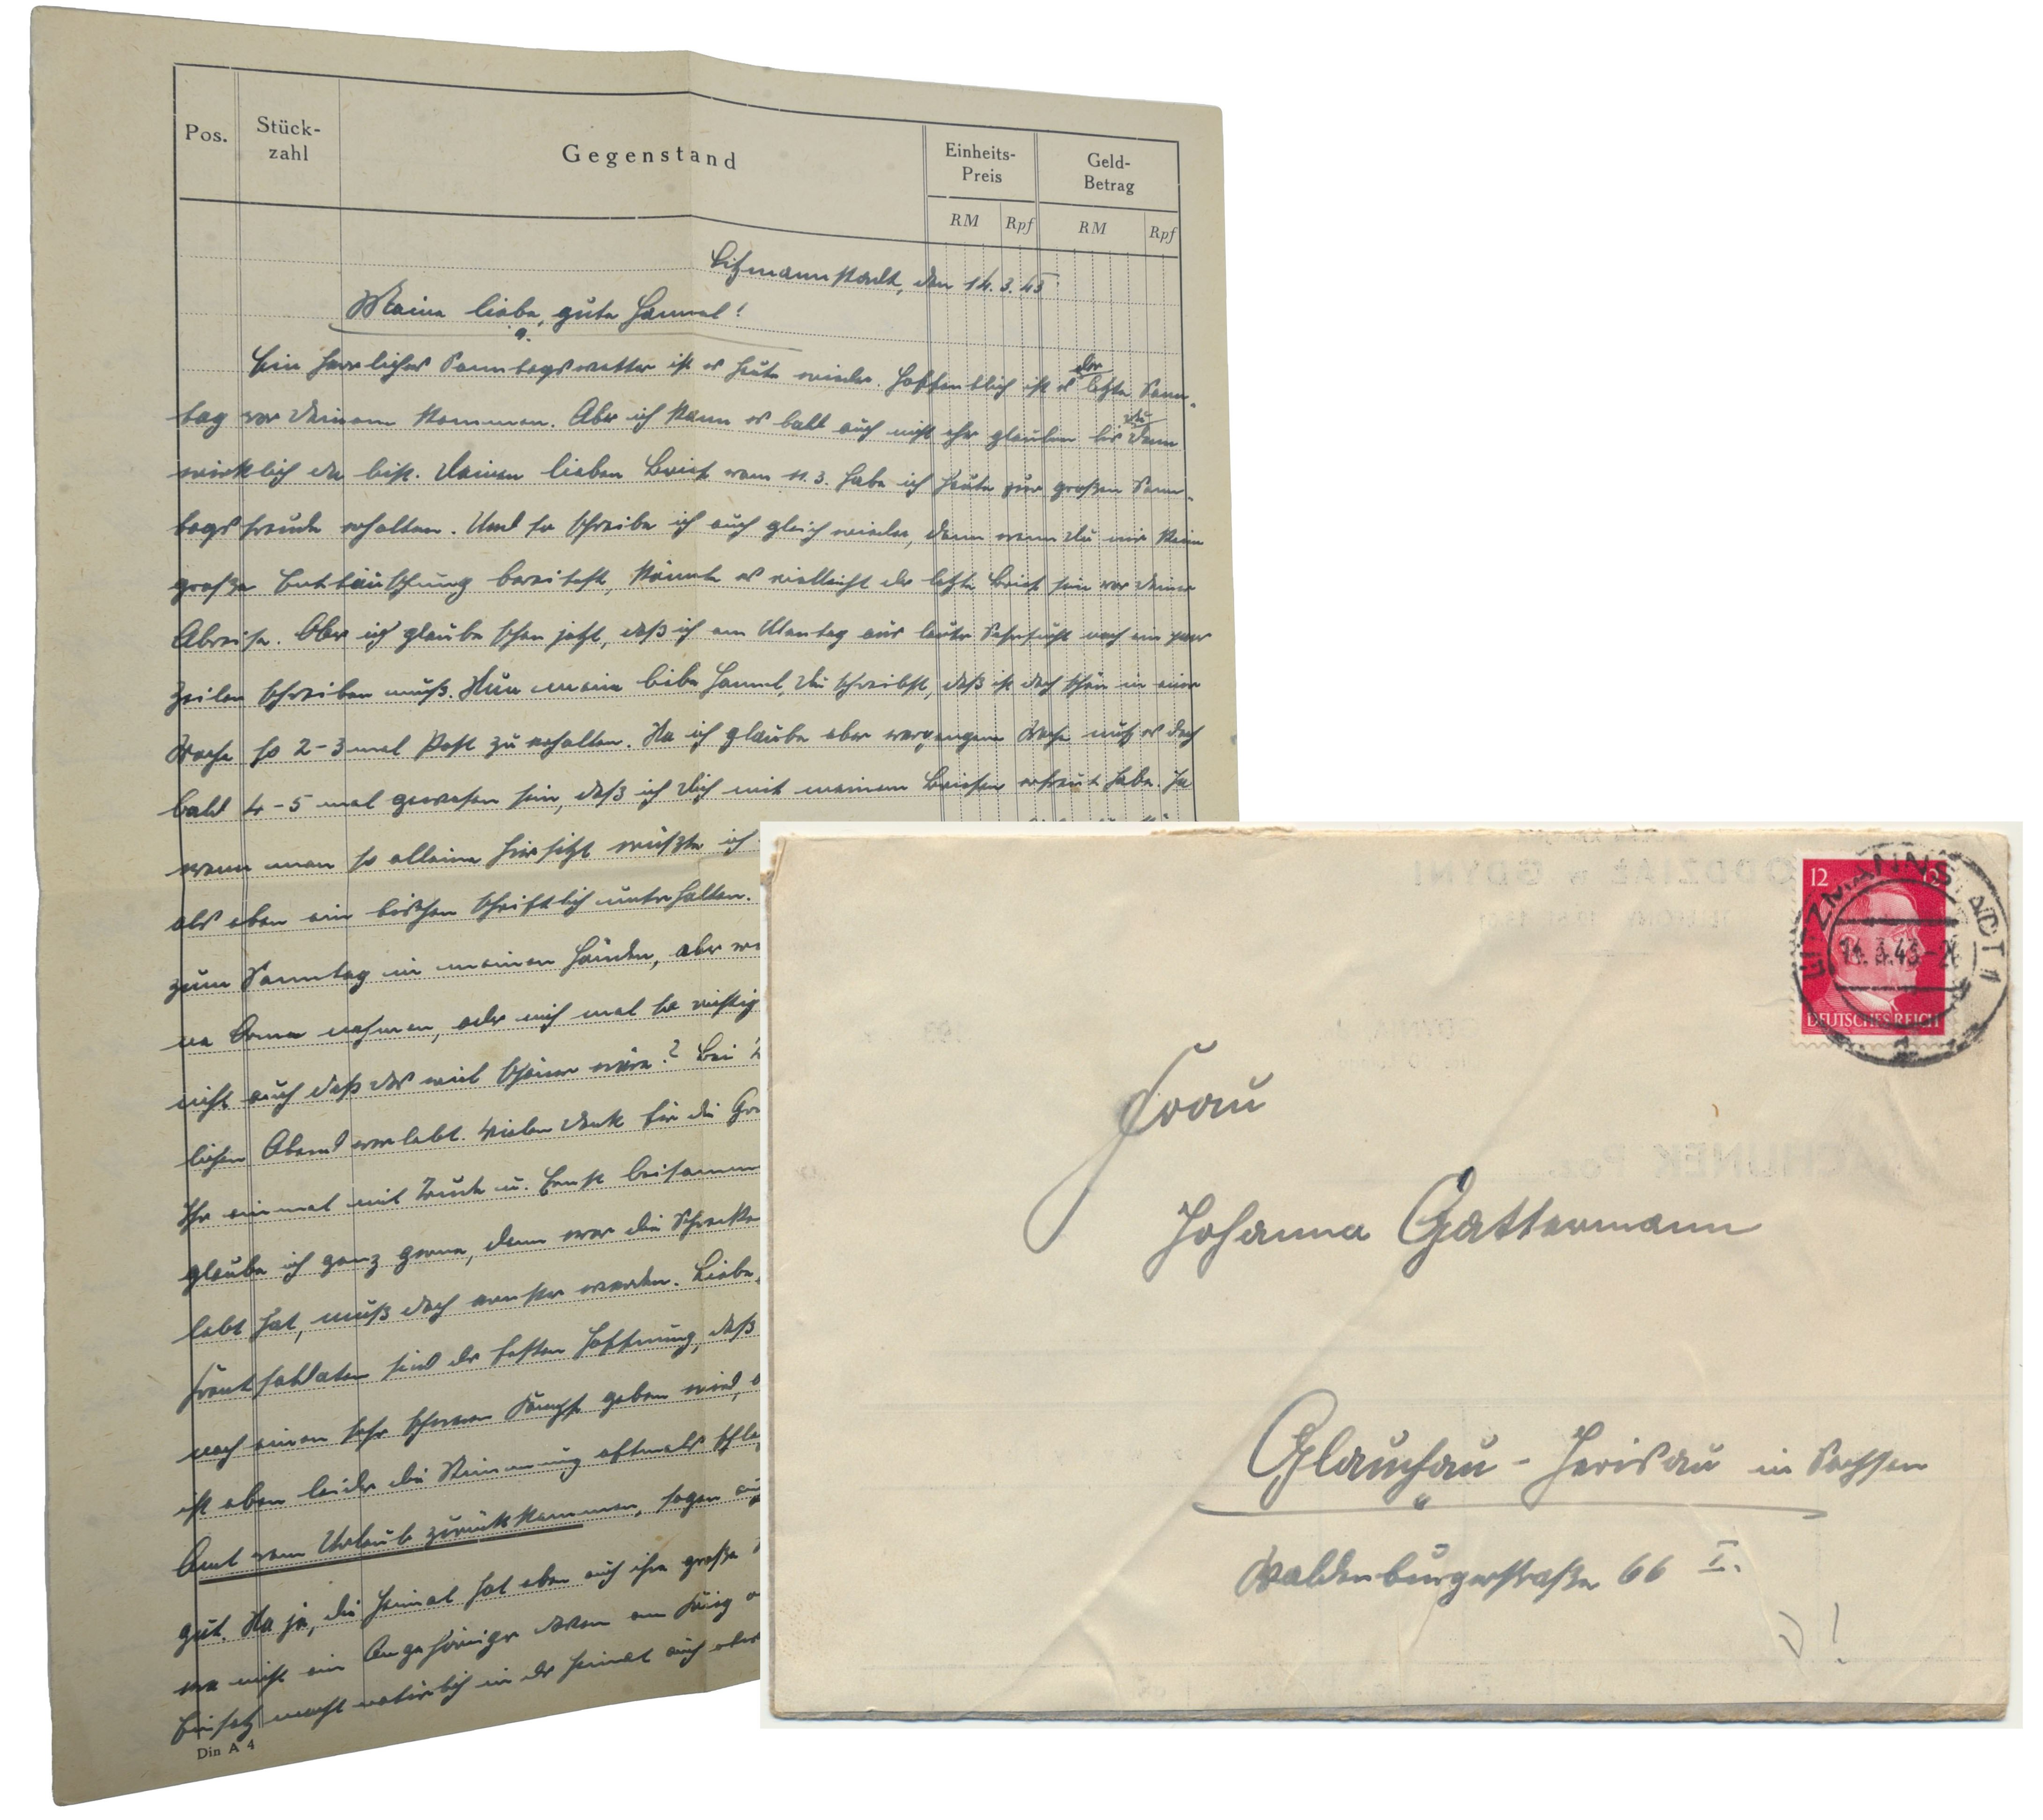 Pos.
Stück-
zahl
Gegenstand
Einheits-
Preis
Geld-
Betrag
RM
Rpf
RM
Rpf
Litzmannstadt, den 14.3.43
Meine liebe, gute Hannel!
Ein herrliches Sonntagswetter ist es heute wieder. Hoffentlich ist es der letzte Sonn-
tag vor Deinem Kommen. Aber ich kann es bald auch nicht ehr glauben bis Du dann
wirklich da bist. Deinen lieben Brief vom 11.3. habe ich heute zur großen Sonn-
tagsfreude erhalten. Und so schreibe ich auch gleich wieder, denn wenn Du mir keine
große Enttäuschung bereitest, könnte es vielleicht der letzte Brief sein vor Deiner
Abreise. Aber ich glaube schon jetzt, daß ich am Montag aus lauter Sehnsucht noch ein paar
Zeilen schreiben muß. Nun meine liebe Hannel, Du schreibst, daß ist doch schön in einer
Woche so 2-3 mal Post zu erhalten. Na ich glaube aber vergangene Woche muß es doch
bald 4-5 mal gewesen sein, daß ich Dich mit meinen Briefen erfreut habe. Ja
wenn man so alleine hier sitzt wüßte ich
als eben ein bischen schriftlich unterhalten.
zum Sonntag in meinen Händen, aber we
ne Arme nehmen, oder mich mal so richtig
nicht auch daß das viel schöner wäre? Bei
lichen Abend verlebt. Vielen Dank für die Gr
Ihr einmal mit Trude u. Ernst beisamm
glaube ich ganz gerne, denn wer die Schrecken
lebt hat, muß doch ernster werden. Liebe
Frontsoldaten sind der festen Hoffnung, daß
noch einen sehr schweren Kampf geben wird,
ist eben leider die Stimmung oftmals schle
Amt vom Urlaub zurückkommen, sagen au
gut. Na ja, die Heimat hat eben auch ihre große
wo nicht ein Angehöriger davon am Krieg
Einsatz macht natürlich in der Heimat auch
Din A 4
ODDZIAŁ w GDYNI
RACHUNEK Poz.
12
DEUTSCHES REICH
LITZMANNSTADT 1
14.3.43-2
Frau
Johanna Gattermann
Glauchau - Jerisau in Sachsen
Waldenburgerstraße 66 I.